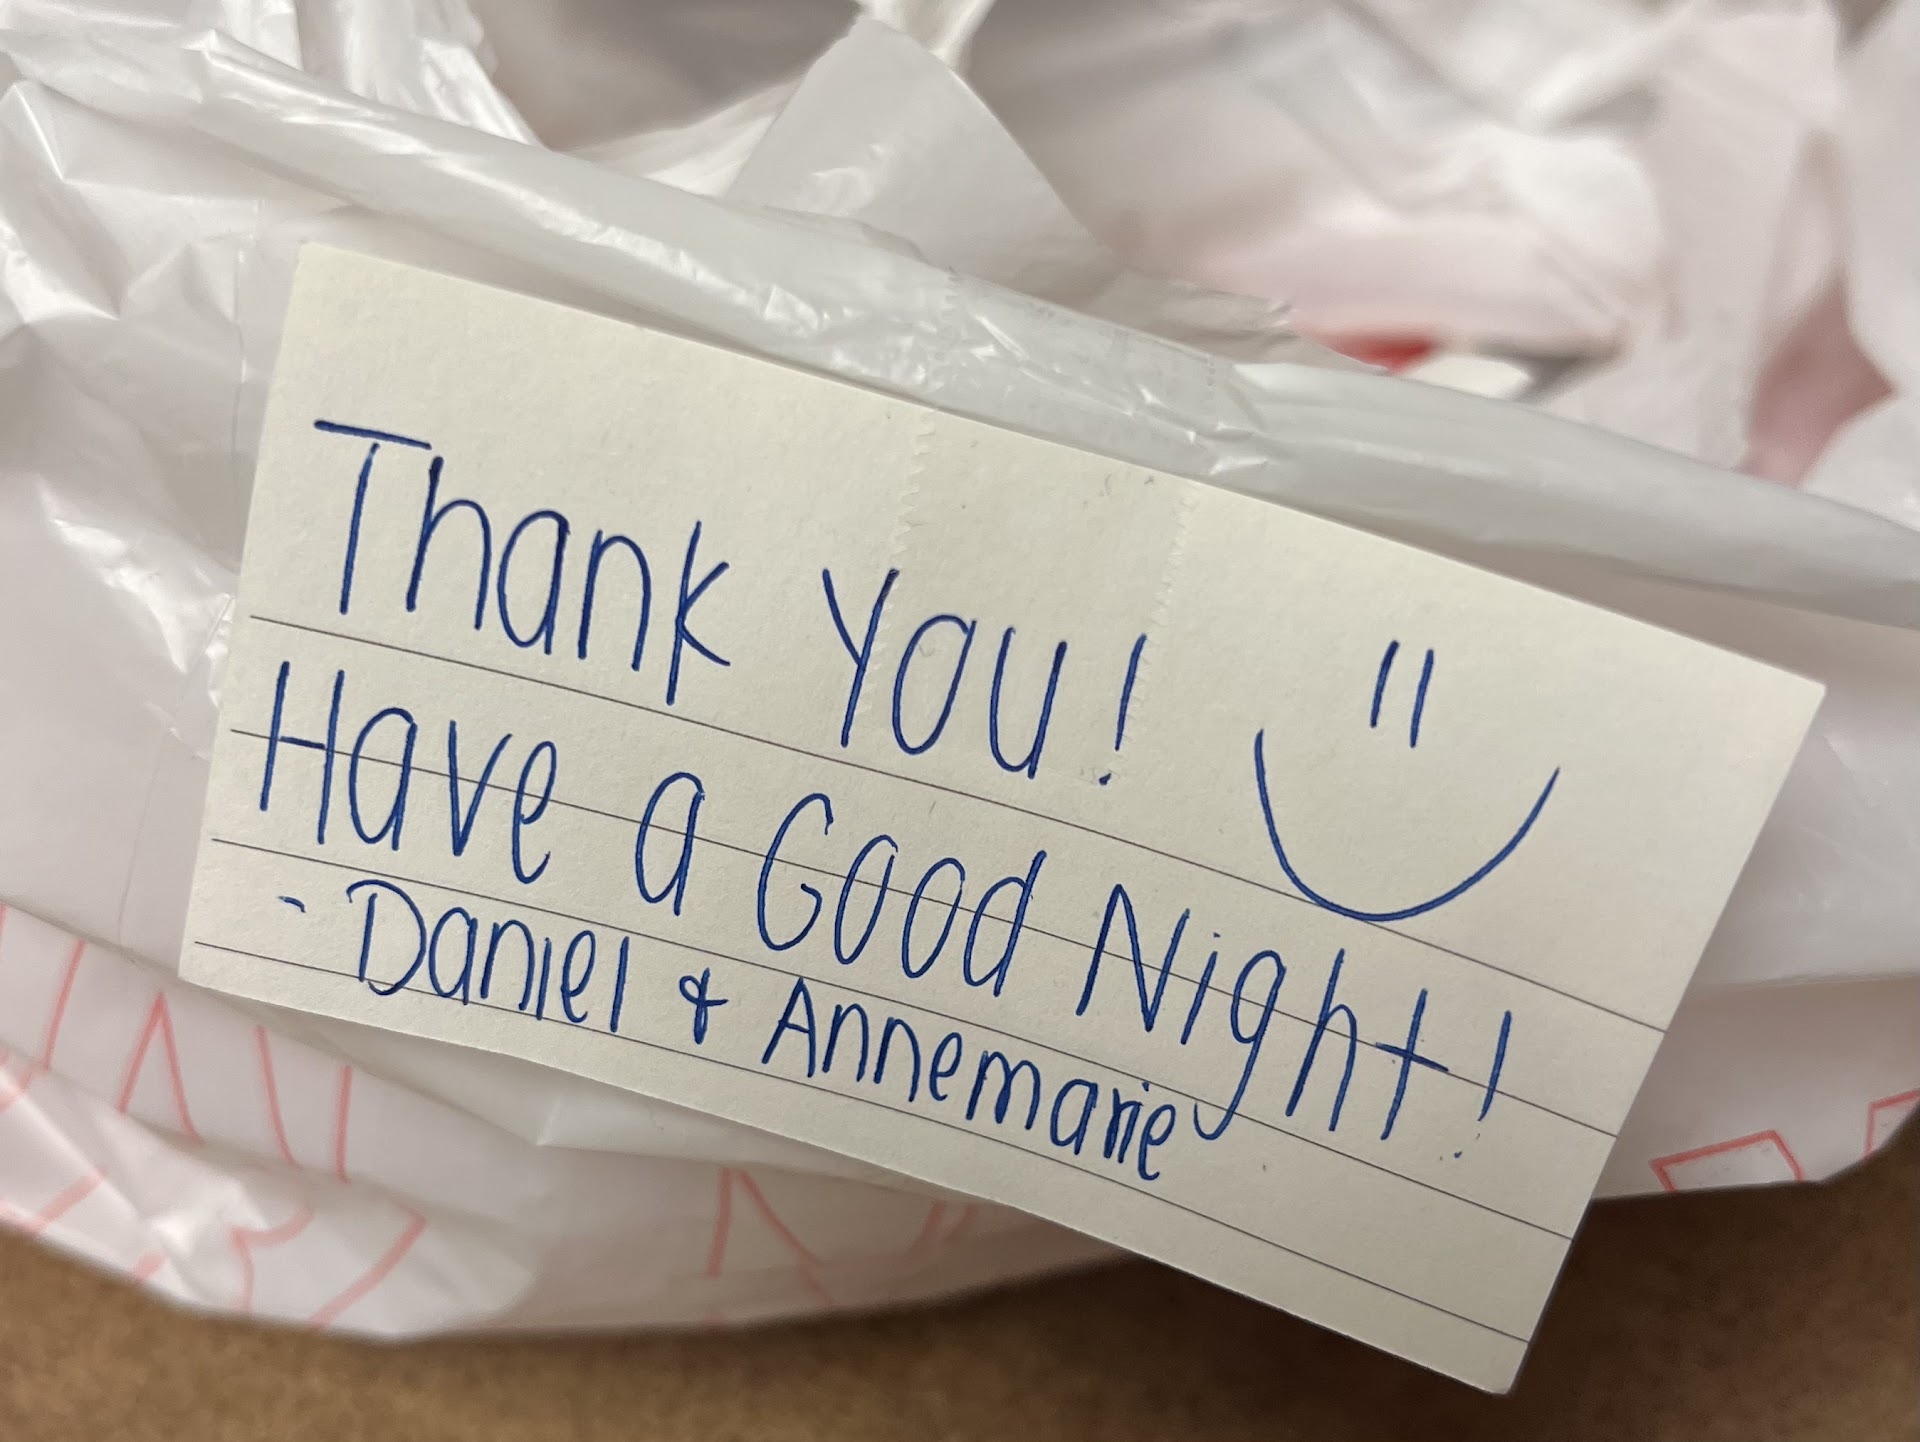 Thank You!
Have a Good Night!
- Daniel & Annemarie